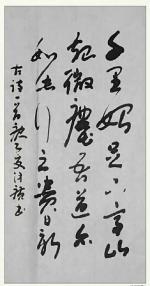 千里始足下高山
起微塵吾道亦
如此行之貴日新
古诗一首